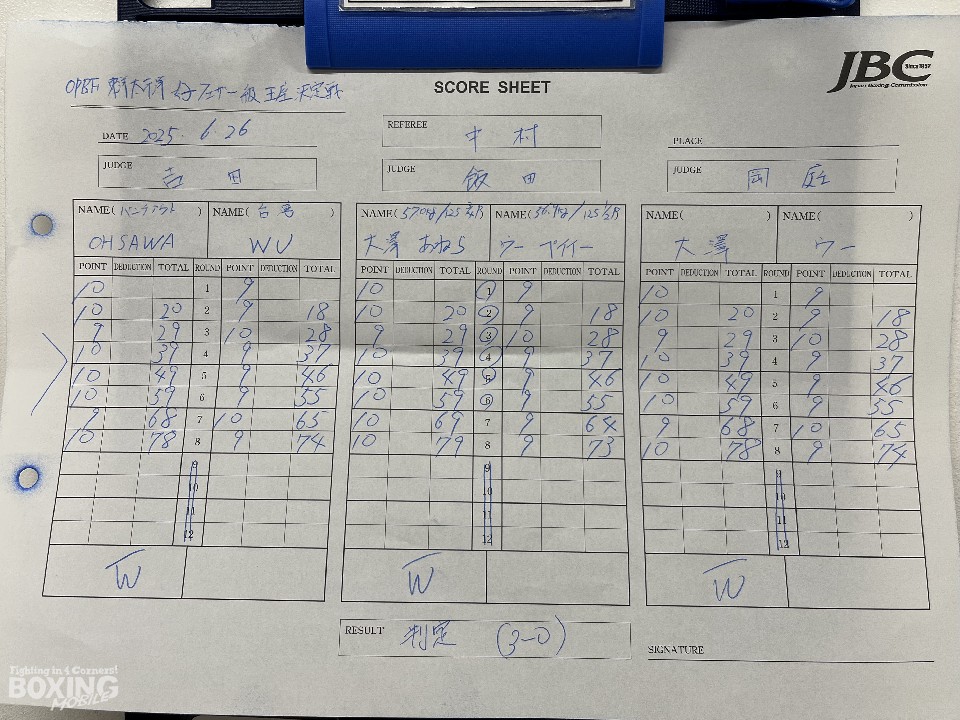 JBC Since 1952
Japan Boxing Commission
SCORE SHEET
OPBF 東洋太平洋 女子フェザー級 王座 決定戦
DATE 2025. 6. 26
REFEREE 中村
PLACE
JUDGE 吉田
JUDGE 飯田
JUDGE 岡庭
NAME( ) NAME(台湾)
OHSAWA WU
NAME(57.0kg/125 ) NAME( /125 )
大澤 おねら ウー ペイイー
NAME( ) NAME( )
大澤 ウー
POINT DEDUCTION TOTAL ROUND POINT DEDUCTION TOTAL
10 1 9
10 20 2 9 18
9 29 3 10 28
10 39 4 9 37
10 49 5 9 46
10 59 6 9 55
9 68 7 10 65
10 78 8 9 74
9
10
11
12
W
POINT DEDUCTION TOTAL ROUND POINT DEDUCTION TOTAL
10 1 9
10 20 2 9 18
9 29 3 10 28
10 39 4 9 37
10 49 5 9 46
10 59 6 9 55
10 69 7 9 64
10 79 8 9 73
9
10
11
12
W
POINT DEDUCTION TOTAL ROUND POINT DEDUCTION TOTAL
10 1 9
10 20 2 9 18
9 29 3 10 28
10 39 4 9 37
10 49 5 9 46
10 59 6 9 55
9 68 7 10 65
10 78 8 9 74
9
10
11
12
W
RESULT 判定 (3-0)
SIGNATURE
Fighting in 4 Corners!
BOXING
MOBILE